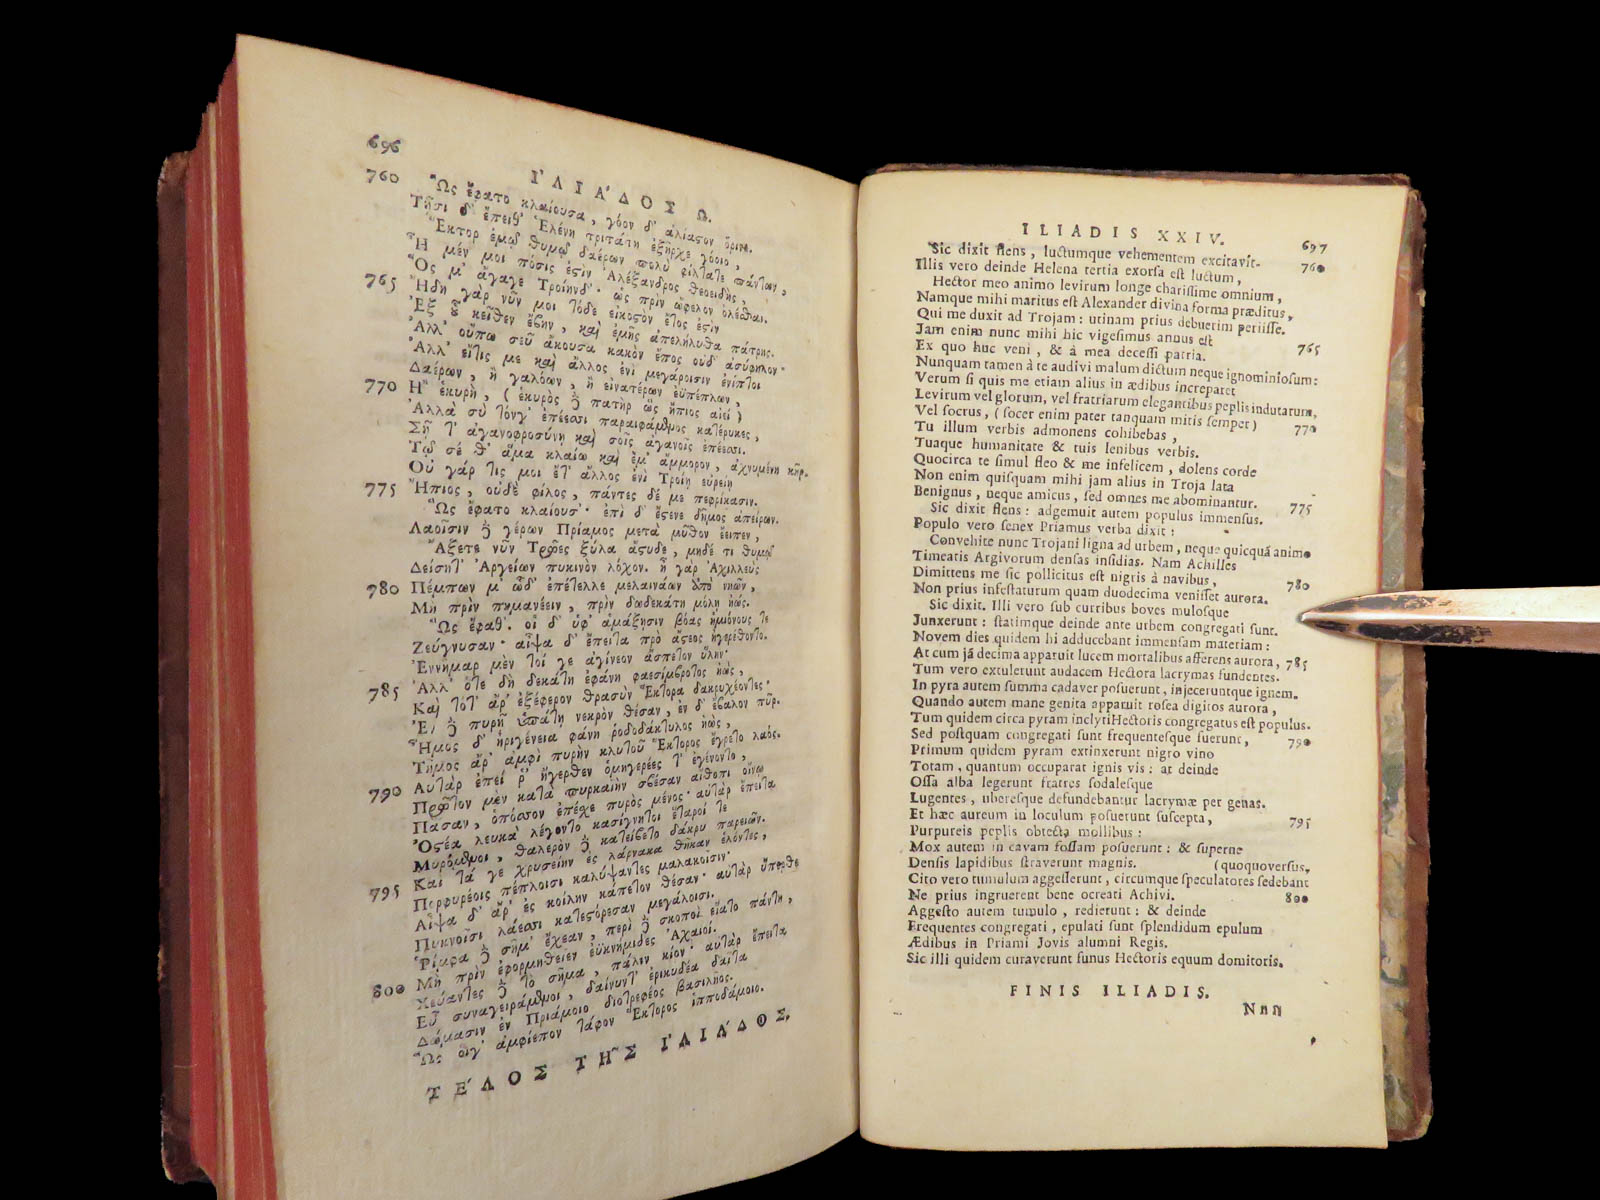 696
ἸΛΙΆΔΟΣ Ω.
760 Ὣς ἔφατο κλαίουσα, γόον δ' ἀλίαστον ὄρινε.
Τῇσι δ' ἔπειθ' Ἑλένη τριτάτη ἐξῆρχε γόοιο,
Ἕκτορ ἐμῷ θυμῷ δαέρων πολὺ φίλτατε πάντων,
Ἦ μέν μοι πόσις ἐστὶν Ἀλέξανδρος θεοειδὴς,
Ὅς μ' ἄγαγε Τροίηνδ'· ὡς πρὶν ὤφελον ὀλέσθαι.
765 Ἤδη γὰρ νῦν μοι τόδε εἰκοστὸν ἔτος ἐστὶν
Ἐξ οὗ κεῖθεν ἔβην, καὶ ἐμῆς ἀπελήλυθα πάτρης.
Ἀλλ' οὔπω σεῦ ἄκουσα κακὸν ἔπος οὐδ' ἀσύφηλον·
Ἀλλ' εἴτις με καὶ ἄλλος ἐνὶ μεγάροισιν ἐνίπτοι
Δαέρων, ἢ γαλόων, ἢ εἰνατέρων εὐπέπλων,
770 Ἢ ἑκυρὴ, (ἑκυρὸς δὲ πατὴρ ὣς ἤπιος αἰεὶ)
Ἀλλὰ σὺ τόνγ' ἐπέεσσι παραιφάμενος κατέρυκες,
Σῇ τ' ἀγανοφροσύνῃ καὶ σοῖς ἀγανοῖς ἐπέεσσι.
Τῷ σέ θ' ἅμα κλαίω καὶ ἔμ' ἄμμορον, ἀχνυμένη κῆρ.
Οὐ γάρ τις μοι ἔτ' ἄλλος ἐνὶ Τροίῃ εὐρείῃ
775 Ἤπιος, οὐδὲ φίλος, πάντες δέ με πεφρίκασιν.
Ὣς ἔφατο κλαίουσ'· ἐπὶ δ' ἔστενε δῆμος ἀπείρων.
Λαοῖσιν δὲ γέρων Πρίαμος μετὰ μῦθον ἔειπεν,
Ἄξετε νῦν Τρῶες ξύλα ἄστυδε, μηδέ τι θυμῷ
Δείσητ' Ἀργείων πυκινὸν λόχον. ἦ γὰρ Ἀχιλλεὺς
780 Πέμπων μ' ὧδ' ἐπέτελλε μελαινάων ἀπὸ νηῶν,
Μὴ πρὶν πημανέειν, πρὶν δωδεκάτη μόλῃ ἠώς.
Ὣς ἔφαθ'. οἱ δ' ὑφ' ἁμάξῃσιν βόας ἡμιόνους τε
Ζεύγνυσαν· αἶψα δ' ἔπειτα πρὸ ἄστεος ἠγερέθοντο.
Ἐννῆμαρ μὲν τοί γε ἀγίνεον ἄσπετον ὕλην·
785 Ἀλλ' ὅτε δὴ δεκάτη ἐφάνη φαεσίμβροτος ἠὼς,
Καὶ τότ' ἄρ' ἐξέφερον θρασὺν Ἕκτορα δακρυχέοντες·
Ἐν δὲ πυρῇ ὑπάτῃ νεκρὸν θέσαν, ἐν δ' ἔβαλον πῦρ.
Ἦμος δ' ἠριγένεια φάνη ῥοδοδάκτυλος ἠὼς,
Τῆμος ἄρ' ἀμφὶ πυρὴν κλυτοῦ Ἕκτορος ἔγρετο λαός.
790 Αὐτὰρ ἐπεί ῥ' ἤγερθεν ὁμηγερέες τ' ἐγένοντο,
Πρῶτον μὲν κατὰ πυρκαϊὴν σβέσαν αἴθοπι οἴνῳ
Πᾶσαν, ὁπόσσον ἐπέχε πυρὸς μένος· αὐτὰρ ἔπειτα
Ὀστέα λευκὰ λέγοντο κασίγνητοι ἕταροί τε
Μυρόμενοι, θαλερὸν δὲ κατείβετο δάκρυ παρειῶν.
795 Καὶ τά γε χρυσείην ἐς λάρνακα θῆκαν ἑλόντες,
Πορφυρέοις πέπλοισι καλύψαντες μαλακοῖσιν·
Αἶψα δ' ἄρ' ἐς κοίλην κάπετον θέσαν· αὐτὰρ ὕπερθε
Πυκνοῖσι λάεσσι κατεστόρεσαν μεγάλοισι.
Ῥίμφα δὲ σῆμ' ἔχεαν, περὶ δὲ σκοποὶ εἵατο πάντῃ,
800 Μὴ πρὶν ἐφορμηθεῖεν ἐϋκνήμιδες Ἀχαιοί.
Χεύαντες δὲ τὸ σῆμα, πάλιν κίον· αὐτὰρ ἔπειτα
Εὖ συναγειράμενοι, δαίνυντ' ἐρικυδέα δαῖτα
Δώμασιν ἐν Πριάμοιο διοτρεφέος βασιλῆος.
Ὣς οἵγ' ἀμφίεπον τάφον Ἕκτορος ἱπποδάμοιο.
ΤΈΛΟΣ ΤΗ͂Σ ἸΛΙΆΔΟΣ.
ILIADIS XXIV. 697
Sic dixit flens, luctumque vehementem excitavit. 760
Illis vero deinde Helena tertia exorsa est luctum,
Hector meo animo levirum longe charissime omnium,
Namque mihi maritus est Alexander divina forma præditus,
Qui me duxit ad Trojam: utinam prius debuerim periisse.
Jam enim nunc mihi hic vigesimus annus est 765
Ex quo huc veni, & à mea decessi patria.
Nunquam tamen à te audivi malum dictum neque ignominiosum:
Verum si quis me etiam alius in ædibus increparet
Levirum vel glorum, vel fratriarum elegantibus peplis indutarum,
Vel socrus, (socer enim pater tanquam mitis semper) 770
Tu illum verbis admonens cohibebas,
Tuaque humanitate & tuis lenibus verbis.
Quocirca te simul fleo & me infelicem, dolens corde
Non enim quisquam mihi jam alius in Troja lata
Benignus, neque amicus, sed omnes me abominantur. 775
Sic dixit flens: adgemuit autem populus immensus.
Populo vero senex Priamus verba dixit:
Convehite nunc Trojani ligna ad urbem, neque quicquā animo
Timeatis Argivorum densas insidias. Nam Achilles
Dimittens me sic pollicitus est nigris à navibus, 780
Non prius infestaturum quam duodecima venisset aurora.
Sic dixit. Illi vero sub curribus boves mulosque
Junxerunt: statimque deinde ante urbem congregati sunt.
Novem dies quidem hi adducebant immensam materiam:
At cum jā decima apparuit lucem mortalibus afferens aurora, 785
Tum vero extulerunt audacem Hectora lacrymas fundentes.
In pyra autem summa cadaver posuerunt, injeceruntque ignem.
Quando autem mane genita apparuit rosea digitos aurora,
Tum quidem circa pyram inclyti Hectoris congregatus est populus.
Sed postquam congregati sunt frequentesque fuerunt, 790
Primum quidem pyram extinxerunt nigro vino
Totam, quantum occuparat ignis vis: at deinde
Ossa alba legerunt fratres sodalesque
Lugentes, uberesque defundebantur lacrymæ per genas.
Et hæc aureum in loculum posuerunt suscepta, 795
Purpureis peplis obtecta mollibus:
Mox autem in cavam fossam posuerunt: & superne
Densis lapidibus straverunt magnis. (quoquoversus,
Cito vero tumulum aggesserunt, circumque speculatores sedebant
Ne prius ingruerent bene ocreati Achivi. 800
Aggesto autem tumulo, redierunt: & deinde
Frequentes congregati, epulati sunt splendidum epulum
Ædibus in Priami Jovis alumni Regis.
Sic illi quidem curaverunt funus Hectoris equum domitoris.
FINIS ILIADIS.
Nnn